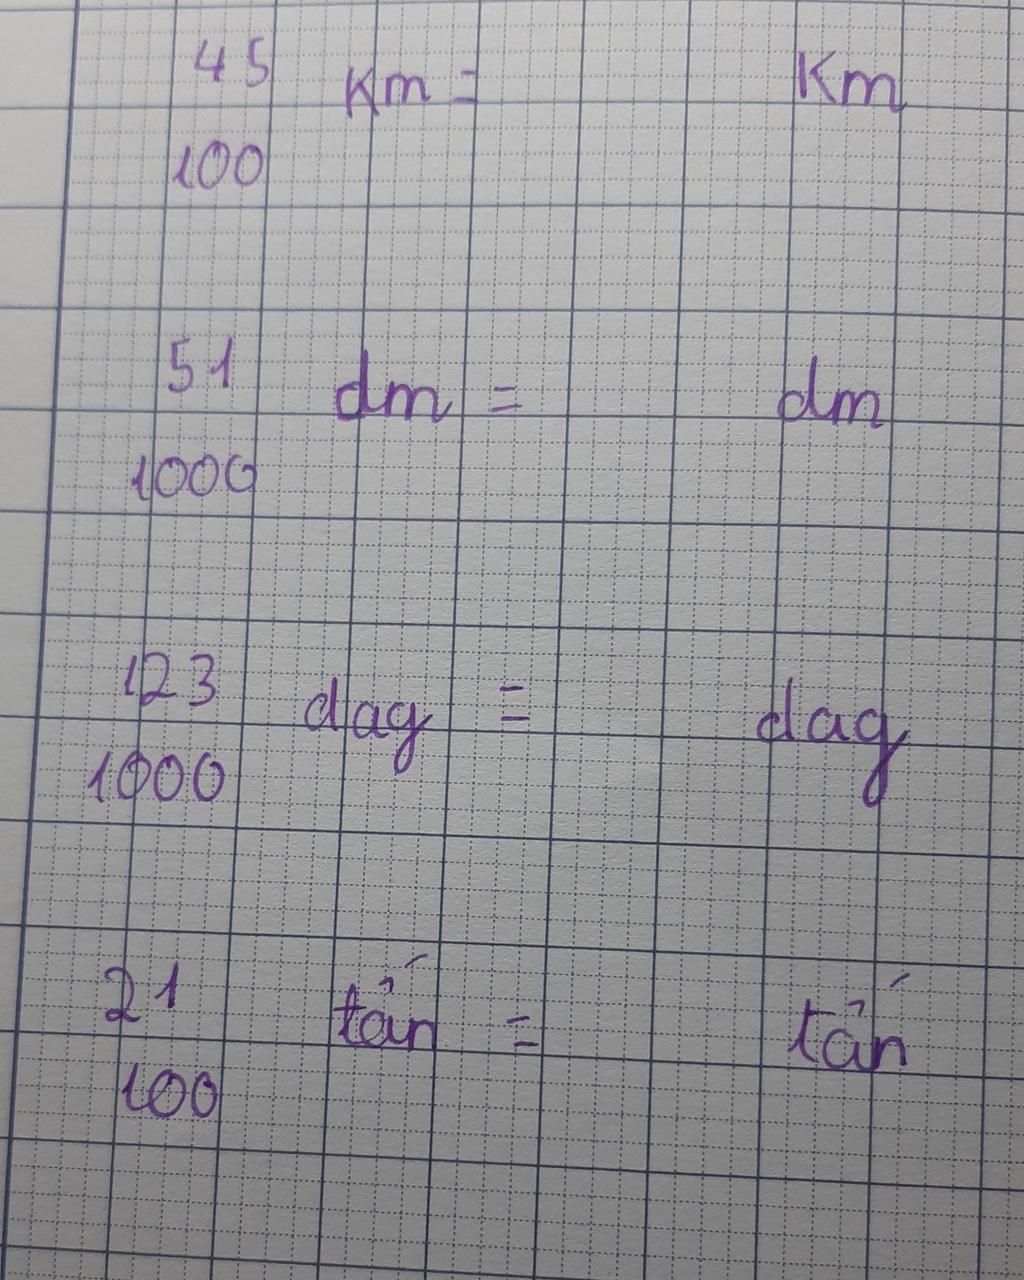 45 Km = Km
100
51 dm = dm
1000
123 dag = dag
1000
21 tấn = tấn
100